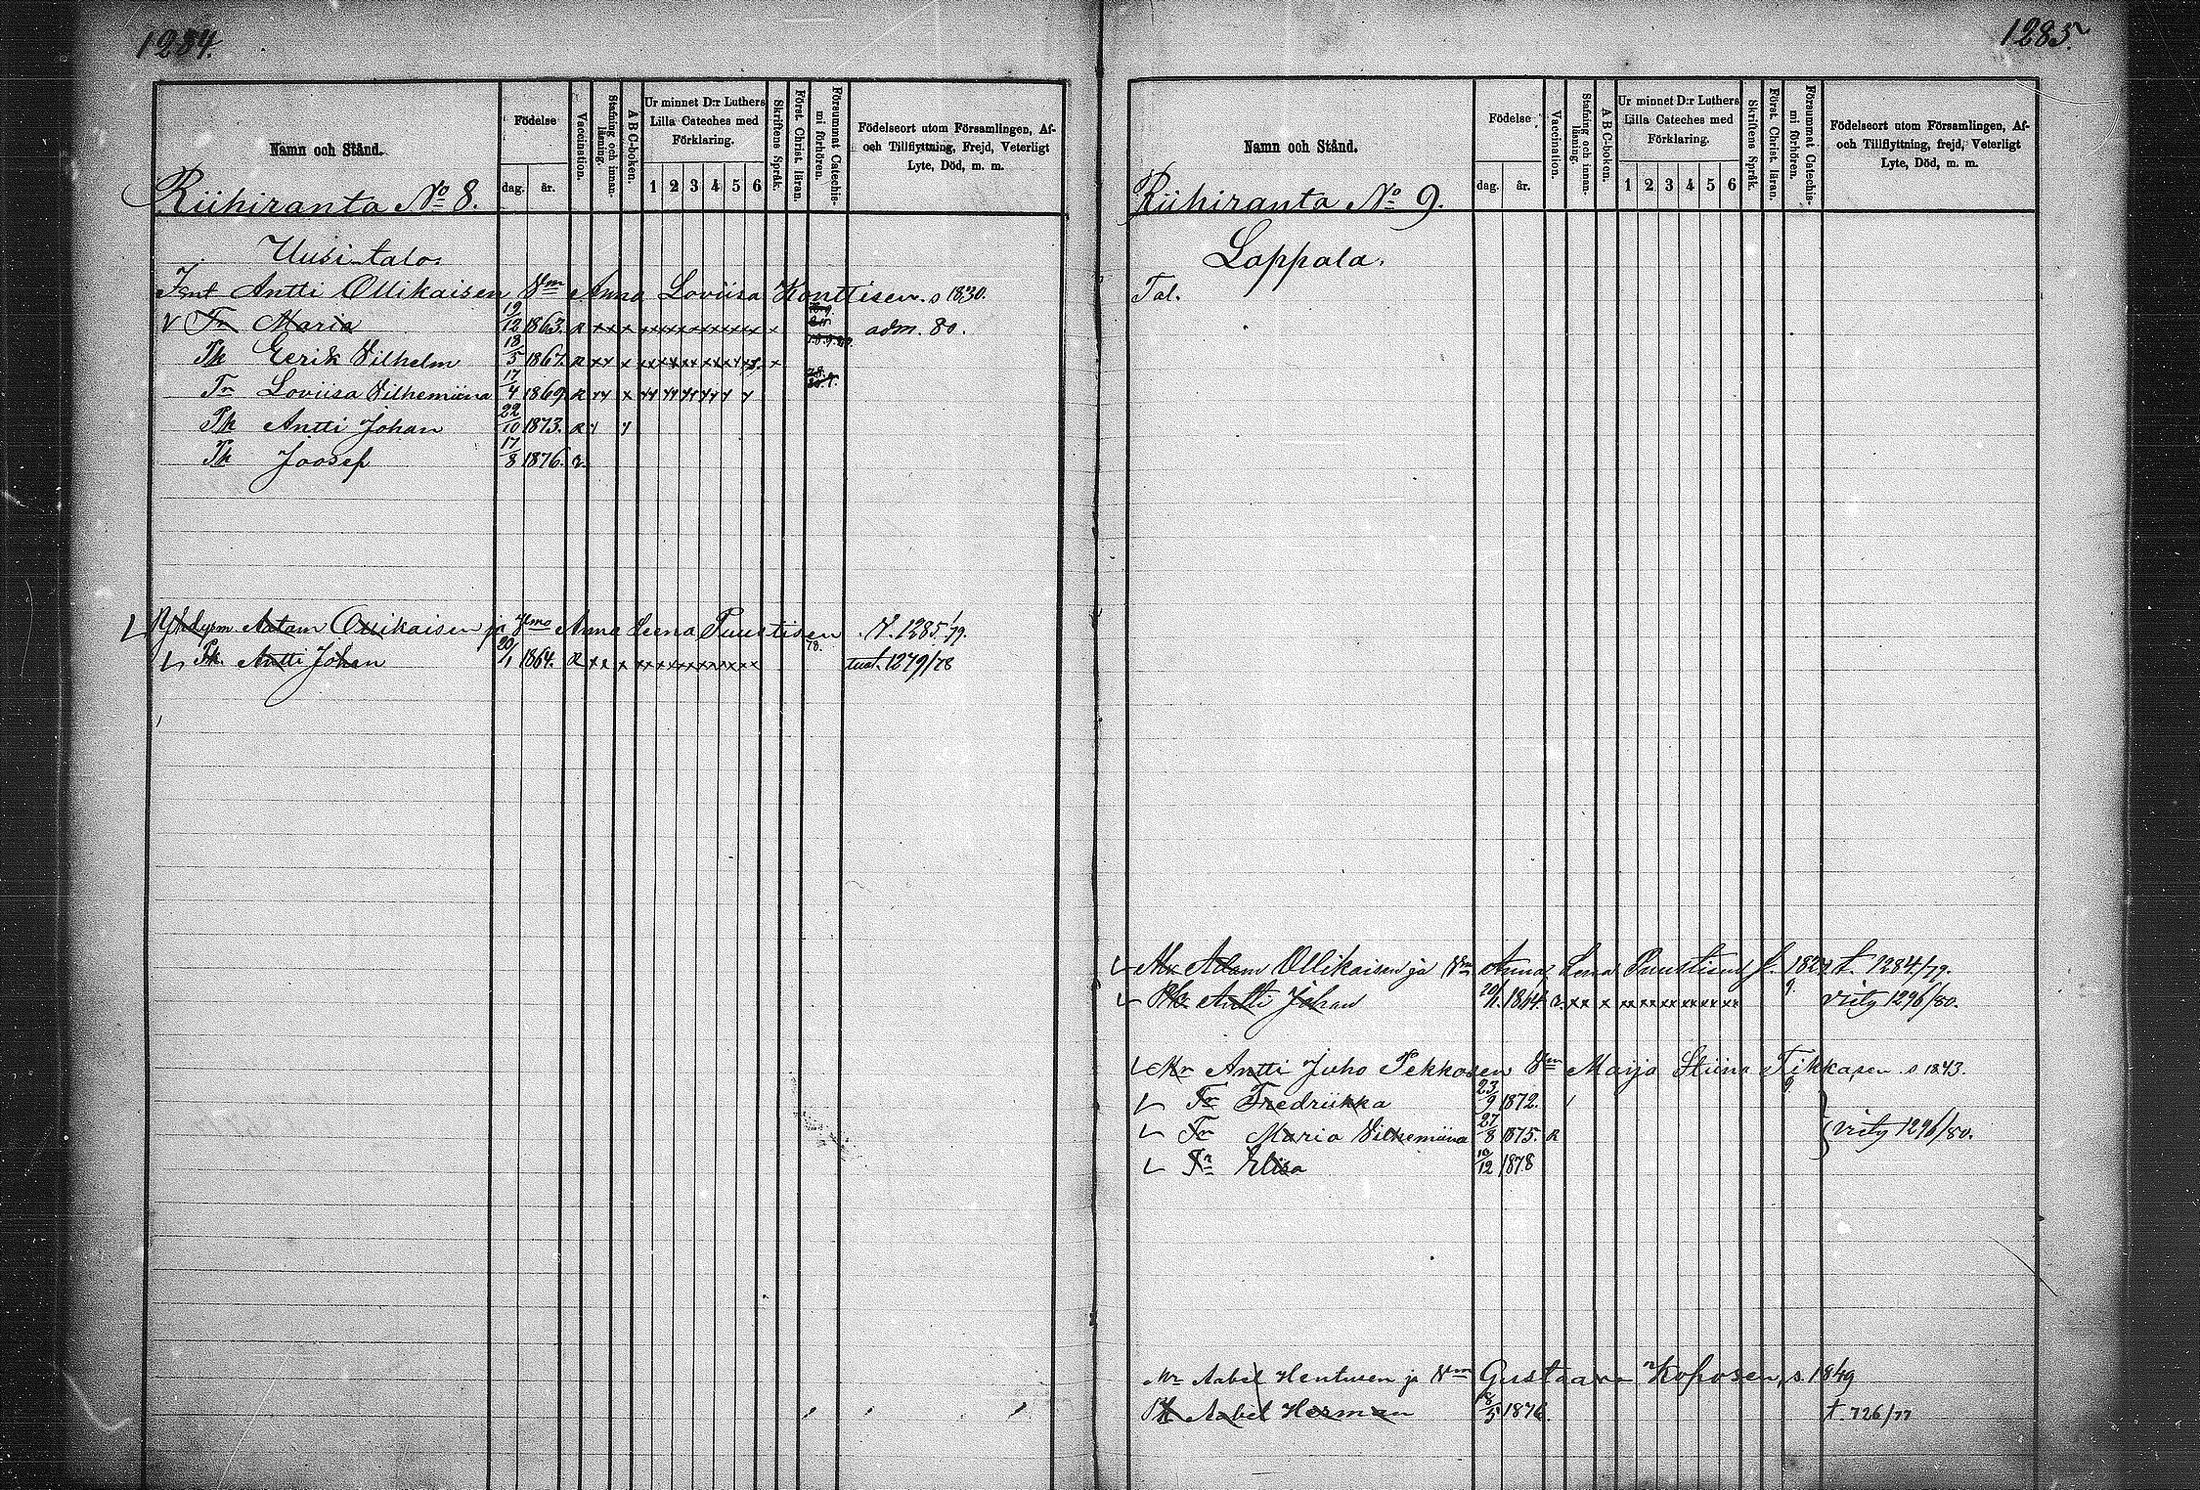 1284.
Namn och Stånd.
Födelse
dag. år.
Vaccination.
Stafning och innan-
läsning.
A B C-boken.
Ur minnet D:r Luthers
Lilla Cateches med
Förklaring.
1 2 3 4 5 6
Skriftens Språk.
Först. Christ. läran.
Försummat Catechis-
mi förhören.
Födelseort utom Församlingen, Af-
och Tillflyttning, Frejd, Veterligt
Lyte, Död, m. m.
Riihiranta No 8.
Uusi-talo.
Antti Ollikaisen Vm Anna Loviisa Konttisen s 1830.
V Tr Maria 19/12 1863. adm. 80.
Pk Eerik Vilhelm 18/5 1867.
Tr Loviisa Vilhemiina 17/4 1869
Pk Antti Johan 22/10 1873.
Pk Joosef 17/8 1876.
Aatam Ollikaisen ja Anna Leena Puustisen 1285/79.
Pk. Antti Johan 20/1 1864. 78. 1279/78
1285.
Namn och Stånd.
Födelse
dag. år.
Vaccination.
Stafning och innan-
läsning.
A B C-boken.
Ur minnet D:r Luthers
Lilla Cateches med
Förklaring.
1 2 3 4 5 6
Skriftens Språk.
Först. Christ. läran.
Försummat Catechis-
mi förhören.
Födelseort utom Församlingen, Af-
och Tillflyttning, frejd, Veterligt
Lyte, Död, m. m.
Riihiranta No 9.
Loppala.
Tal.
Adam Ollikaisen ja Vm Anna Lena Puustisen t. 1284/79.
Antti Johan 20/1. 1864. 9. 1296/80.
Mr Antti Juho Pekkosen Vm Maija Stiina Tikkasen s 1843.
Tr Fredriikka 23/9 1872. 9
Tr Maria Vilhemiina 27/8 1875. 1296/80.
Tr Elisa 10/12 1878
Mr Aabel Hentusen ja Vm Gustaava Koposen, s. 1849
Pk Aabel Herman 1876. t. 726/77